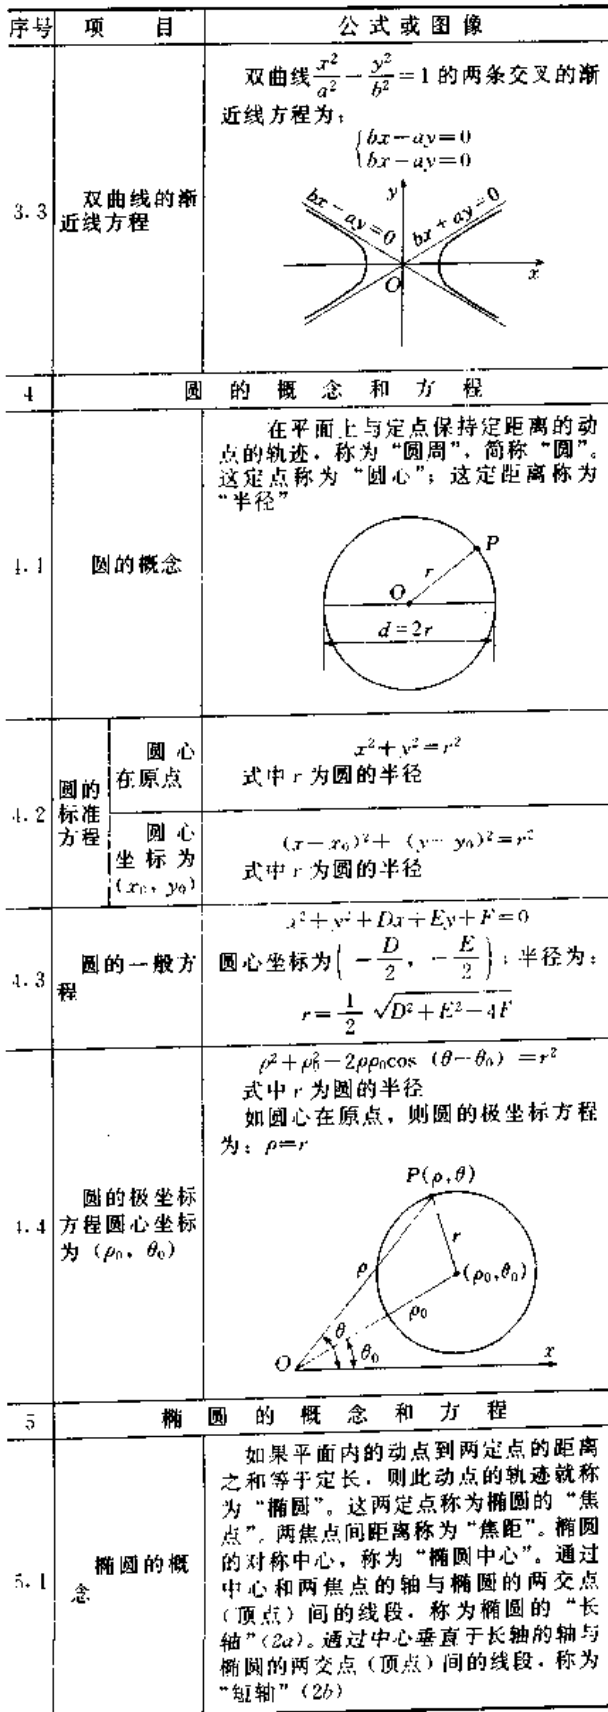 序号 项 目 公式或图像
双曲线x²/a² − y²/b² = 1 的两条交叉的渐
近线方程为：
{bx−ay=0
{bx−ay=0
3.3 双曲线的渐
近线方程
y
bx−ay=0
bx+ay=0
O
x
4 圆 的 概 念 和 方 程
在平面上与定点保持定距离的动
点的轨迹，称为“圆周”，简称“圆”。
这定点称为“圆心”；这定距离称为
“半径”
4.1 圆的概念
P
r
O
d=2r
4.2 圆的
标准
方程
圆心
在原点
x²+y²=r²
式中 r 为圆的半径
圆心
坐标为
(x₀, y₀)
(x−x₀)²+ (y−y₀)²=r²
式中 r 为圆的半径
4.3 圆的一般方
程
x²+y²+Dx+Ey+F=0
圆心坐标为(−D/2, −E/2)；半径为：
r=1/2 √D²+E²−4F
ρ²+ρ₀²−2ρρ₀cos (θ−θ₀) =r²
式中 r 为圆的半径
如圆心在原点，则圆的极坐标方程
为：ρ=r
4.4 圆的极坐标
方程圆心坐标
为 (ρ₀, θ₀)
P(ρ,θ)
r
ρ
(ρ₀,θ₀)
ρ₀
θ
θ₀
O
x
5 椭 圆 的 概 念 和 方 程
5.1 椭圆的概
念
如果平面内的动点到两定点的距离
之和等于定长，则此动点的轨迹就称
为“椭圆”。这两定点称为椭圆的“焦
点”，两焦点间距离称为“焦距”。椭圆
的对称中心，称为“椭圆中心”。通过
中心和两焦点的轴与椭圆的两交点
（顶点）间的线段，称为椭圆的“长
轴”(2a)。通过中心垂直于长轴的轴与
椭圆的两交点（顶点）间的线段，称为
“短轴”（2b）